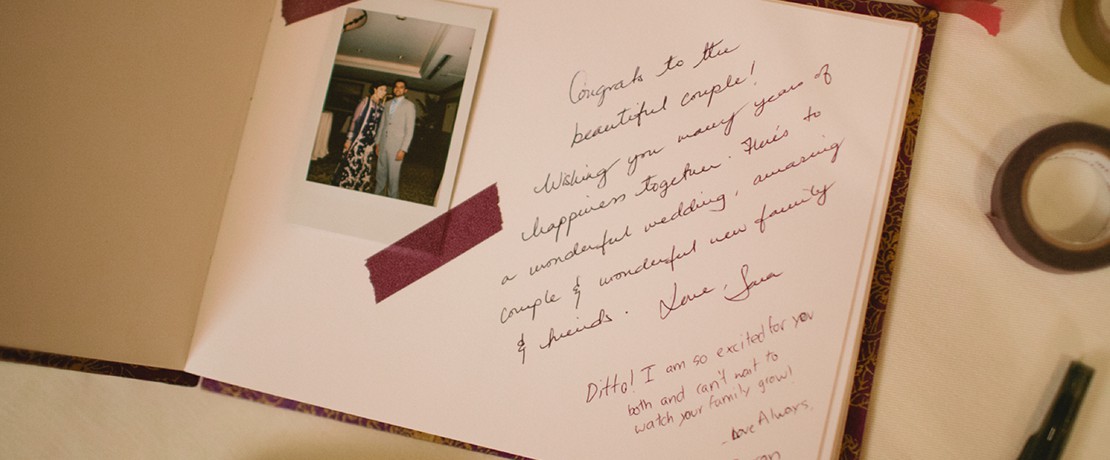 Congrats to the
beautiful couple!
Wishing you many years of
happiness together. Here's to
a wonderful wedding, amazing
couple & wonderful new family
& friends. Love, Sara
Ditto! I am so excited for you
both and can't wait to
watch your family grow!
- Love Always,